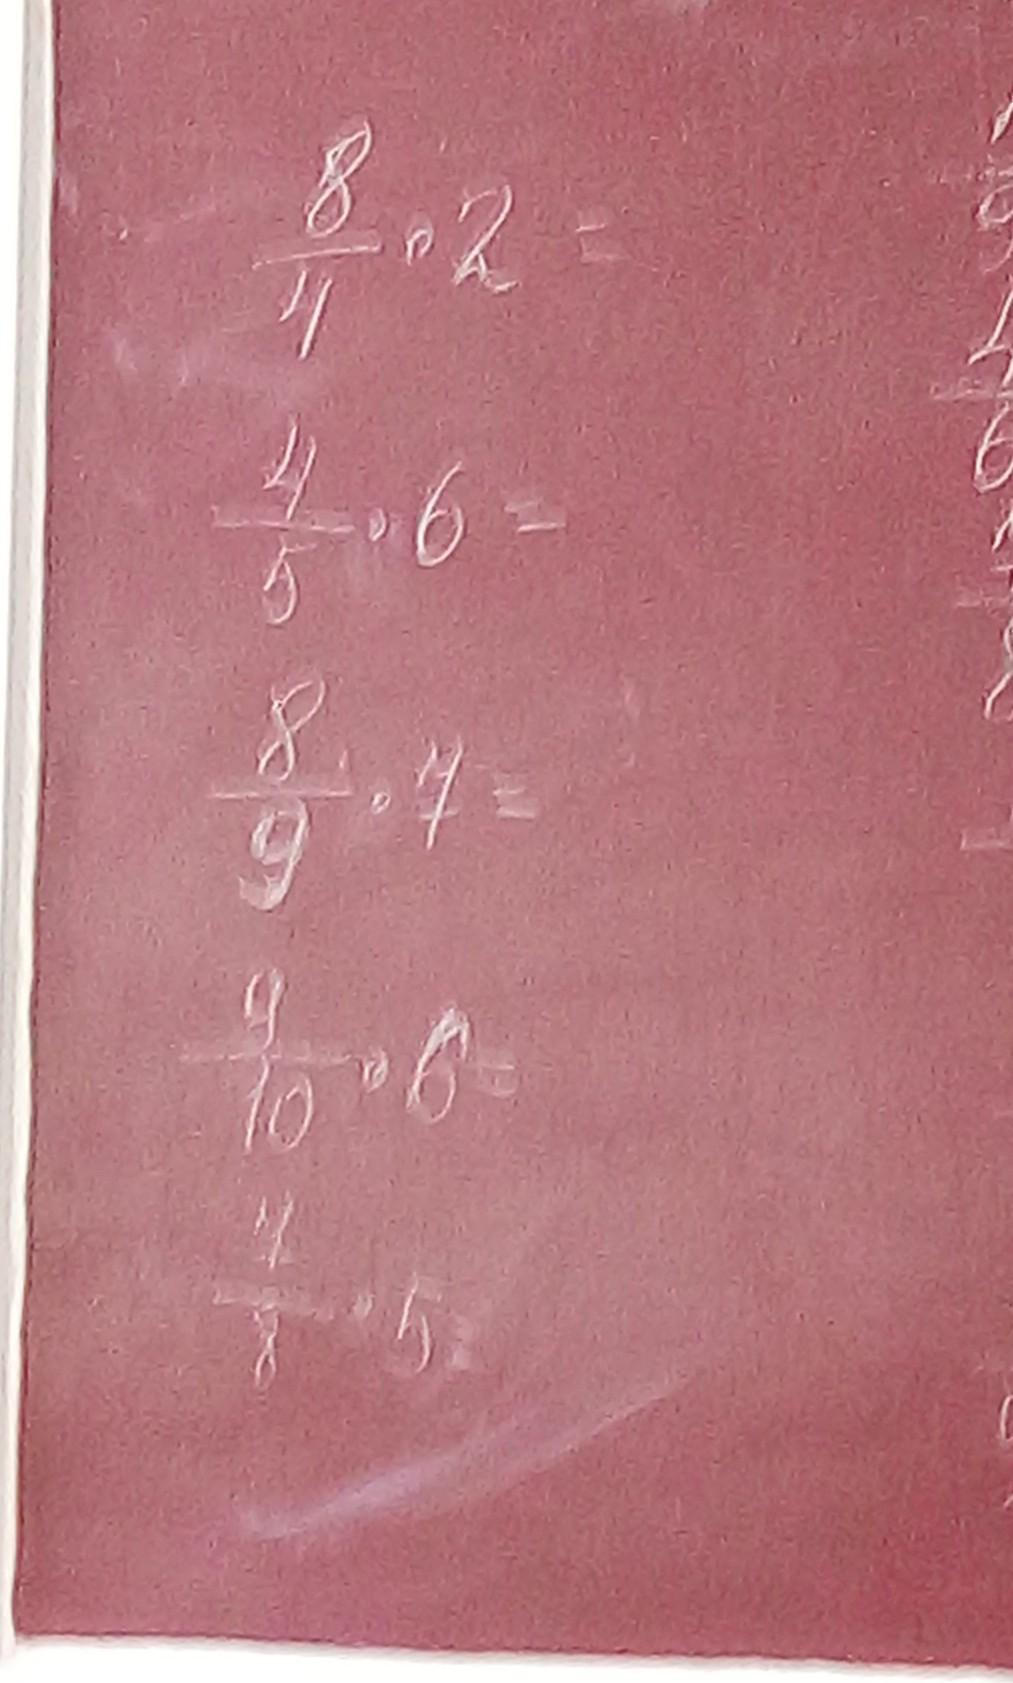 8/4 · 2 =
4/5 · 6 =
8/9 · 7 =
9/10 · 6 =
7/8 · 5 =